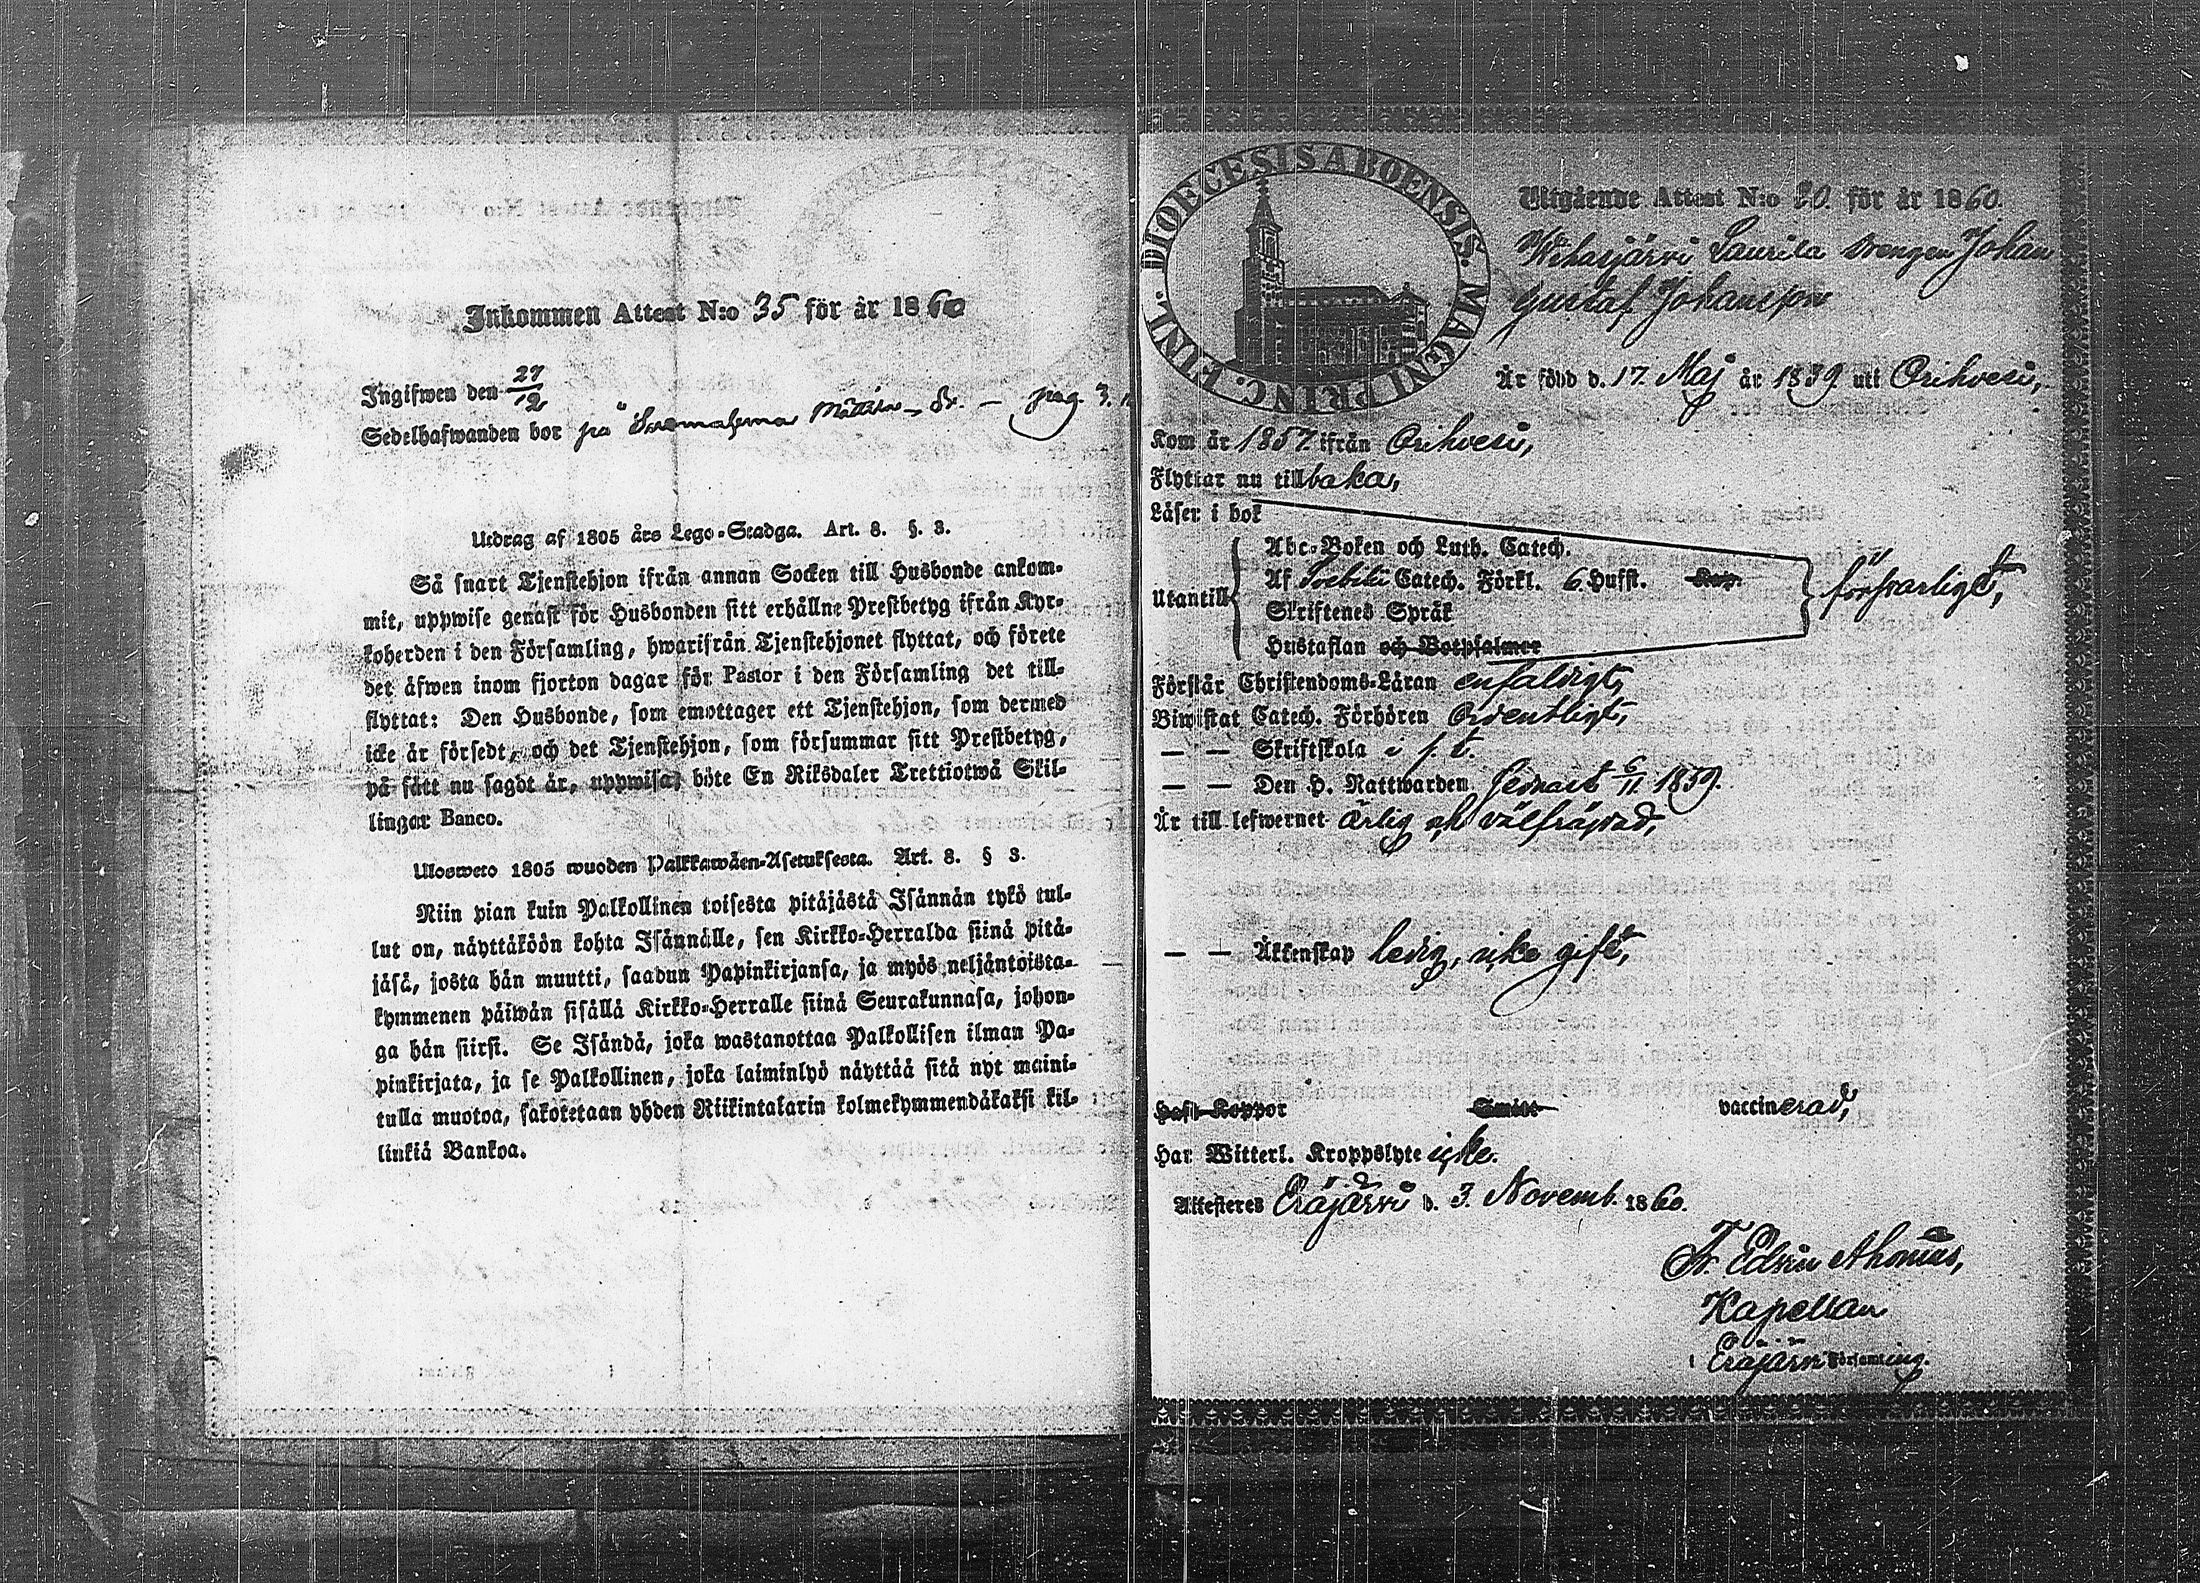 Inkommen Attest N:o 35 för år 1860
Ingifwen den 27/12
Sedelhafwanden bor på Mattila – dr. – pag. 3.
Utdrag af 1805 års Lego-Stadga. Art. 8. §. 3.
Så snart Tjenstehjon ifrån annan Socken till Husbonde ankom-
mit, uppwise genast för Husbonden sitt erhållne Prestbetyg ifrån Kyr-
koherden i den Församling, hwarifrån Tjenstehjonet flyttat, och förete
det äfwen inom fjorton dagar för Pastor i den Församling det till-
flyttat: Den Husbonde, som emottager ett Tjenstehjon, som dermed
icke är försedt, och det Tjenstehjon, som försummar sitt Prestbetyg,
på sätt nu sagdt är, uppwisa, böte En Riksdaler Trettiotwå Skil-
lingar Banco.
Ulosweto 1805 wuoden Palkkawäen-Asetuksesta. Art. 8. § 3.
Niin pian kuin Palkollinen toisesta pitäjästä Isännän tykö tul-
lut on, näyttäköön kohta Isännälle, sen Kirkko-Herralda siinä pitä-
jäsä, josta hän muutti, saadun Papinkirjansa, ja myös neljäntoista-
kymmenen päiwän sisällä Kirkko-Herralle siinä Seurakunnasa, johon-
ga hän siirsi. Se Isändä, joka wastanottaa Palkollisen ilman Pa-
pinkirjata, ja se Palkollinen, joka laiminlyö näyttää sitä nyt maini-
tulla muotoa, sakotetaan yhden Riikintalarin kolmekymmendäkaksi kil-
linkiä Bankoa.
DIOECESIS ABOENSIS. MAGNI PRINC. FINL.
Utgående Attest N:o 30. för år 1860.
Wihasjärvi Laurila drengen Johan
Gustaf Johansson
Är född d. 17. Maj år 1839 uti Orihvesi,
Kom år 1857 ifrån Orihvesi,
Flyttar nu tillbaka,
Läser i bok
Utantill
Abc-Boken och Luth. Catech.
Af Svebilii Catech. Förkl. 6 Hufst.
Skriftenes Språk
Hustaflan och Botpsalmer
försvarligt,
Förstår Christendoms-Läran enfaldigt,
Biwistat Catech. Förhören ordentligt,
— — Skriftskola i s. t.
— — Den H. Nattwarden senast 6/11 1859.
Är till lefwernet ärlig och välfräjdad,
— — Äktenskap ledig, icke gift,
Haft Koppor Smitt vaccinerad,
Har Witterl. Kroppslyte icke.
Attesteres Eräjärvi d. 3. Novemb. 1860.
Fr. Edvin Ahonius,
Kapellan
i Eräjärvi Församling.